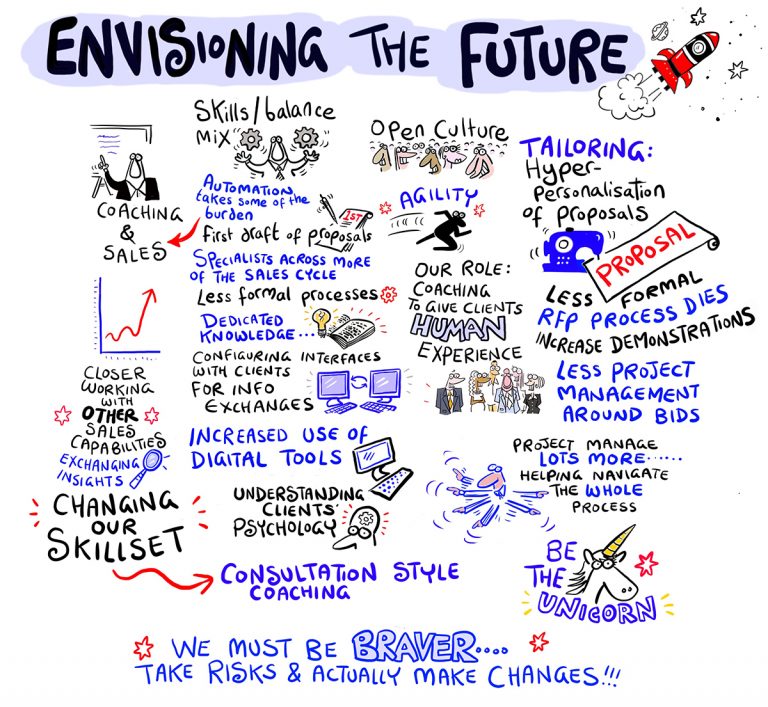 ENVISIONING THE FUTURE
COACHING
&
SALES
CLOSER
WORKING
WITH
OTHER
SALES
CAPABILITIES
EXCHANGING
INSIGHTS
CHANGING
OUR
SKILLSET
Skills/balance
Mix
AUTOMATION
takes some of the
burden
first draft of proposals
1ST
SPECIALISTS ACROSS MORE
OF THE SALES CYCLE
Less formal processes
DEDICATED
KNOWLEDGE...
CONFIGURING INTERFACES
WITH CLIENTS
FOR INFO
EXCHANGES
INCREASED USE OF
DIGITAL TOOLS
UNDERSTANDING
CLIENTS'
PSYCHOLOGY
CONSULTATION STYLE
COACHING
Open Culture
AGILITY
OUR ROLE:
COACHING
TO GIVE CLIENTS
HUMAN
EXPERIENCE
TAILORING:
Hyper-
personalisation
of proposals
PROPOSAL
LESS FORMAL
RFP PROCESS DIES
INCREASE DEMONSTRATIONS
LESS PROJECT
MANAGEMENT
AROUND BIDS
PROJECT MANAGE
LOTS MORE......
HELPING NAVIGATE
THE WHOLE
PROCESS
BE
THE
UNICORN
WE MUST BE BRAVER....
TAKE RISKS & ACTUALLY MAKE CHANGES!!!